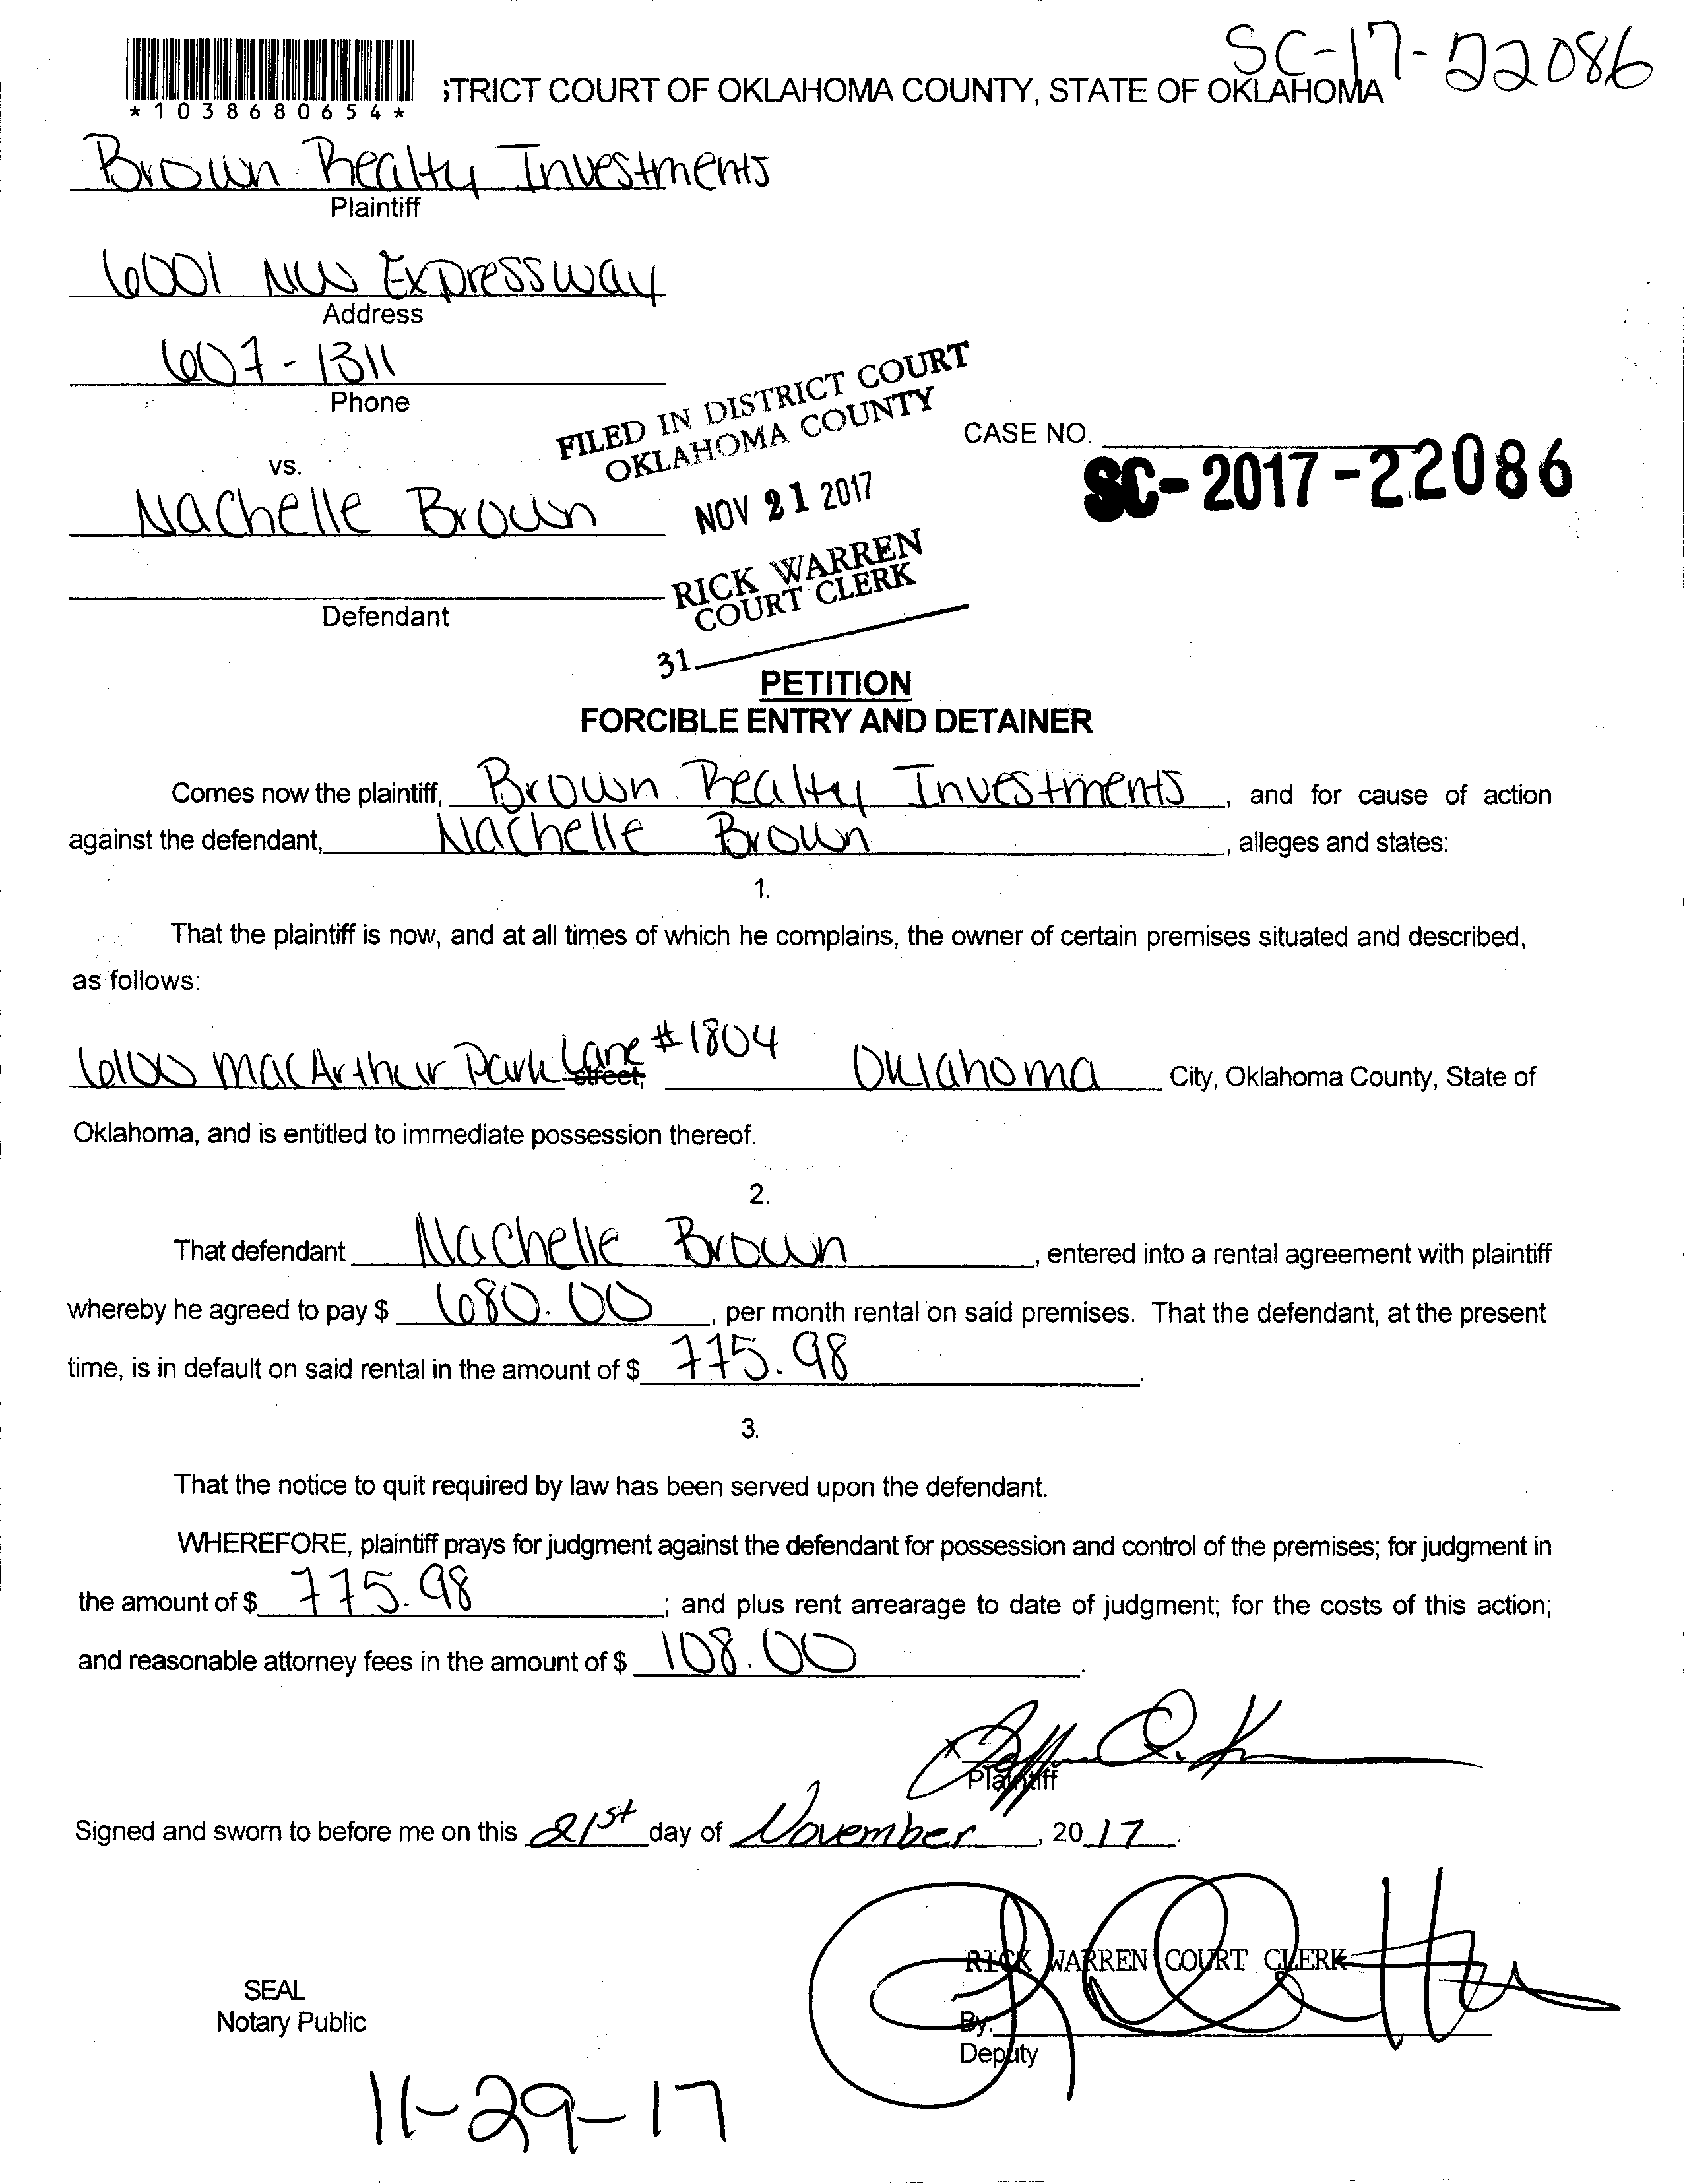 SC-17-22086
*1038680654*
STRICT COURT OF OKLAHOMA COUNTY, STATE OF OKLAHOMA
Brown Realty Investments
Plaintiff
6001 NW Expressway
Address
607-1311
Phone
FILED IN DISTRICT COURT
OKLAHOMA COUNTY
CASE NO.
SC-2017-22086
vs.
Nachelle Brown
NOV 21 2017
RICK WARREN
COURT CLERK
Defendant
31
PETITION
FORCIBLE ENTRY AND DETAINER
Comes now the plaintiff, Brown Realty Investments, and for cause of action
against the defendant, Nachelle Brown, alleges and states:
1.
That the plaintiff is now, and at all times of which he complains, the owner of certain premises situated and described,
as follows:
6100 MacArthur Park Lane #1804 street, Oklahoma City, Oklahoma County, State of
Oklahoma, and is entitled to immediate possession thereof.
2.
That defendant Nachelle Brown, entered into a rental agreement with plaintiff
whereby he agreed to pay $ 680.00, per month rental on said premises. That the defendant, at the present
time, is in default on said rental in the amount of $ 775.98.
3.
That the notice to quit required by law has been served upon the defendant.
WHEREFORE, plaintiff prays for judgment against the defendant for possession and control of the premises; for judgment in
the amount of $ 775.98; and plus rent arrearage to date of judgment; for the costs of this action;
and reasonable attorney fees in the amount of $ 108.00.
x
Plaintiff
Signed and sworn to before me on this 21st day of November, 2017.
RICK WARREN COURT CLERK
SEAL
Notary Public
By:
Deputy
11-29-17